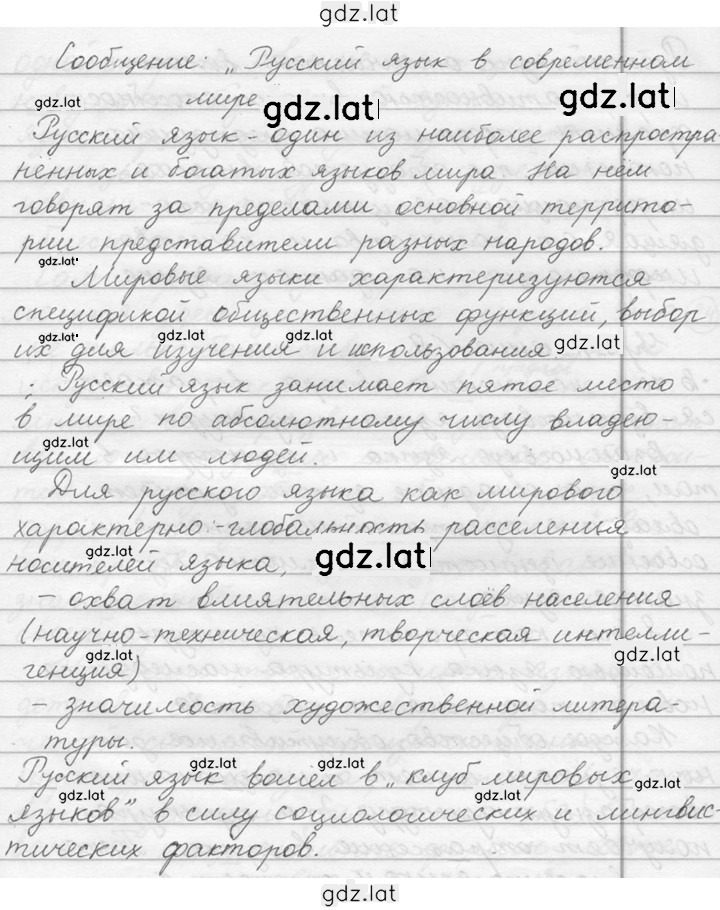 gdz.lat
Сообщение: „Русский язык в современном
gdz.lat мире gdz.lat gdz.lat
Русский язык - один из наиболее распростра
нённых и богатых языков мира. На нём
говорят за пределами основной террито-
рии представители разных народов.
gdz.lat
Мировые языки характеризуются
спецификой общественных функций, выбор
gdz.lat gdz.lat gdz.lat gdz.lat
их для изучения и использования.
: Русский язык занимает пятое место
в мире по абсолютному числу владею-
gdz.lat
щим им людей.
gdz.lat
Для русского языка как мирового
характерно -глобальность расселения
gdz.lat gdz.lat
носителей языка,
- охват влиятельных слоёв населения
(научно-техническая, творческая интелли-
gdz.lat gdz.lat
генция)
- значимость художественной литера-
туры.
gdz.lat gdz.lat gdz.lat
Русский язык вошёл в „клуб мировых
gdz.lat gdz.lat gdz.lat
языков" в силу социологических и лингвис-
тических факторов.
gdz.lat